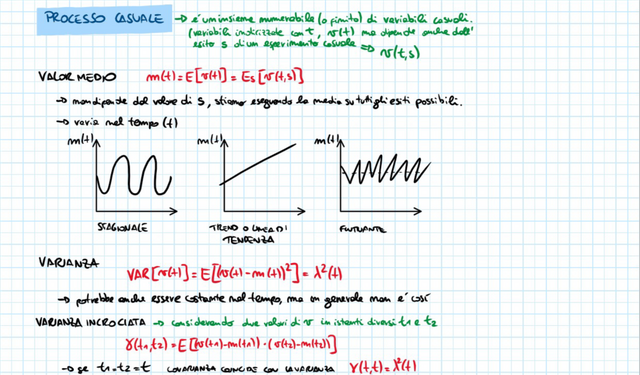 PROCESSO CASUALE → è un insieme numerabile (o finito) di variabili casuali.
(variabili indicizzate con t, v(t) ma dipende anche dall'
esito s di un esperimento casuale ⇒ v(t,s)
VALOR MEDIO m(t) = E[v(t)] = Es[v(t,s)]
→ non dipende dal valore di s, stiamo eseguendo la media su tutti gli esiti possibili.
→ varia nel tempo (t)
m(t) m(t) m(t)
STAGIONALE TREND O LINEA DI FLUTTUANTE
TENDENZA
VARIANZA VAR[v(t)] = E[(v(t) - m(t))²] = λ²(t)
→ potrebbe anche essere costante nel tempo, ma in generale non è così
VARIANZA INCROCIATA → considerando due valori di v in istanti diversi t1 e t2
γ(t1,t2) = E[(v(t1) - m(t1)) · (v(t2) - m(t2))]
→ se t1 = t2 = t COVARIANZA COINCIDE CON LA VARIANZA γ(t,t) = λ²(t)